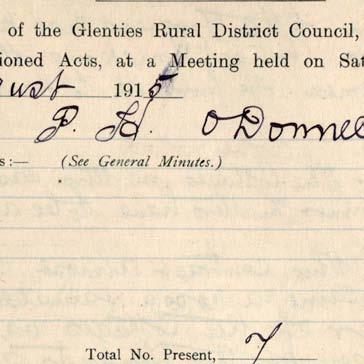 of the Glenties Rural District Council,
tioned Acts, at a Meeting held on Sat
rust 1915
P. H. O'Donnel
s:— (See General Minutes.)
Total No. Present, 7